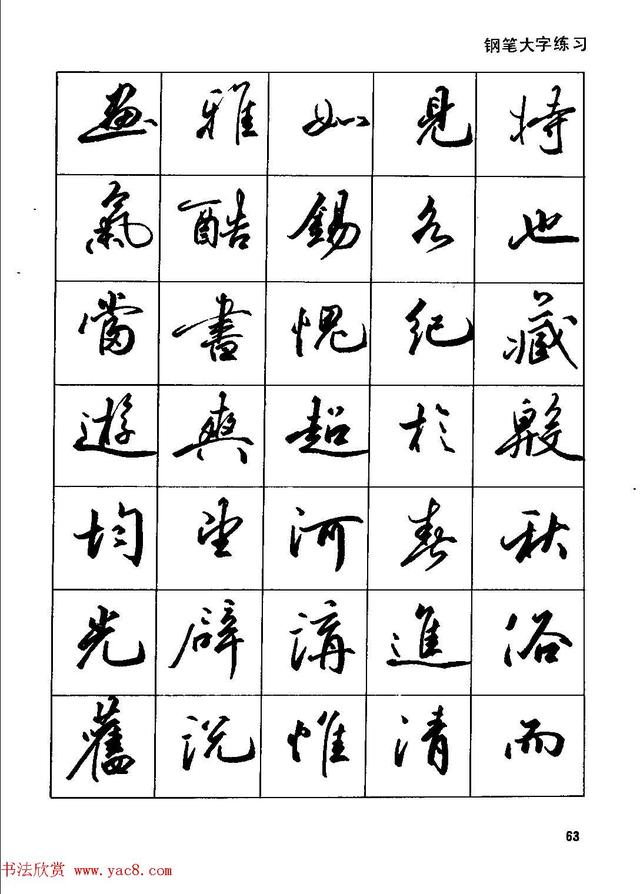 钢笔大字练习
雅 如 見 特
氣 酷 錫 也
當 書 愧 紀 藏
遊 爽 超 於
均 望 河 春 秋
先 辟 講 進
舊 説 惟 清 而
63
书法欣赏 www.yac8.com